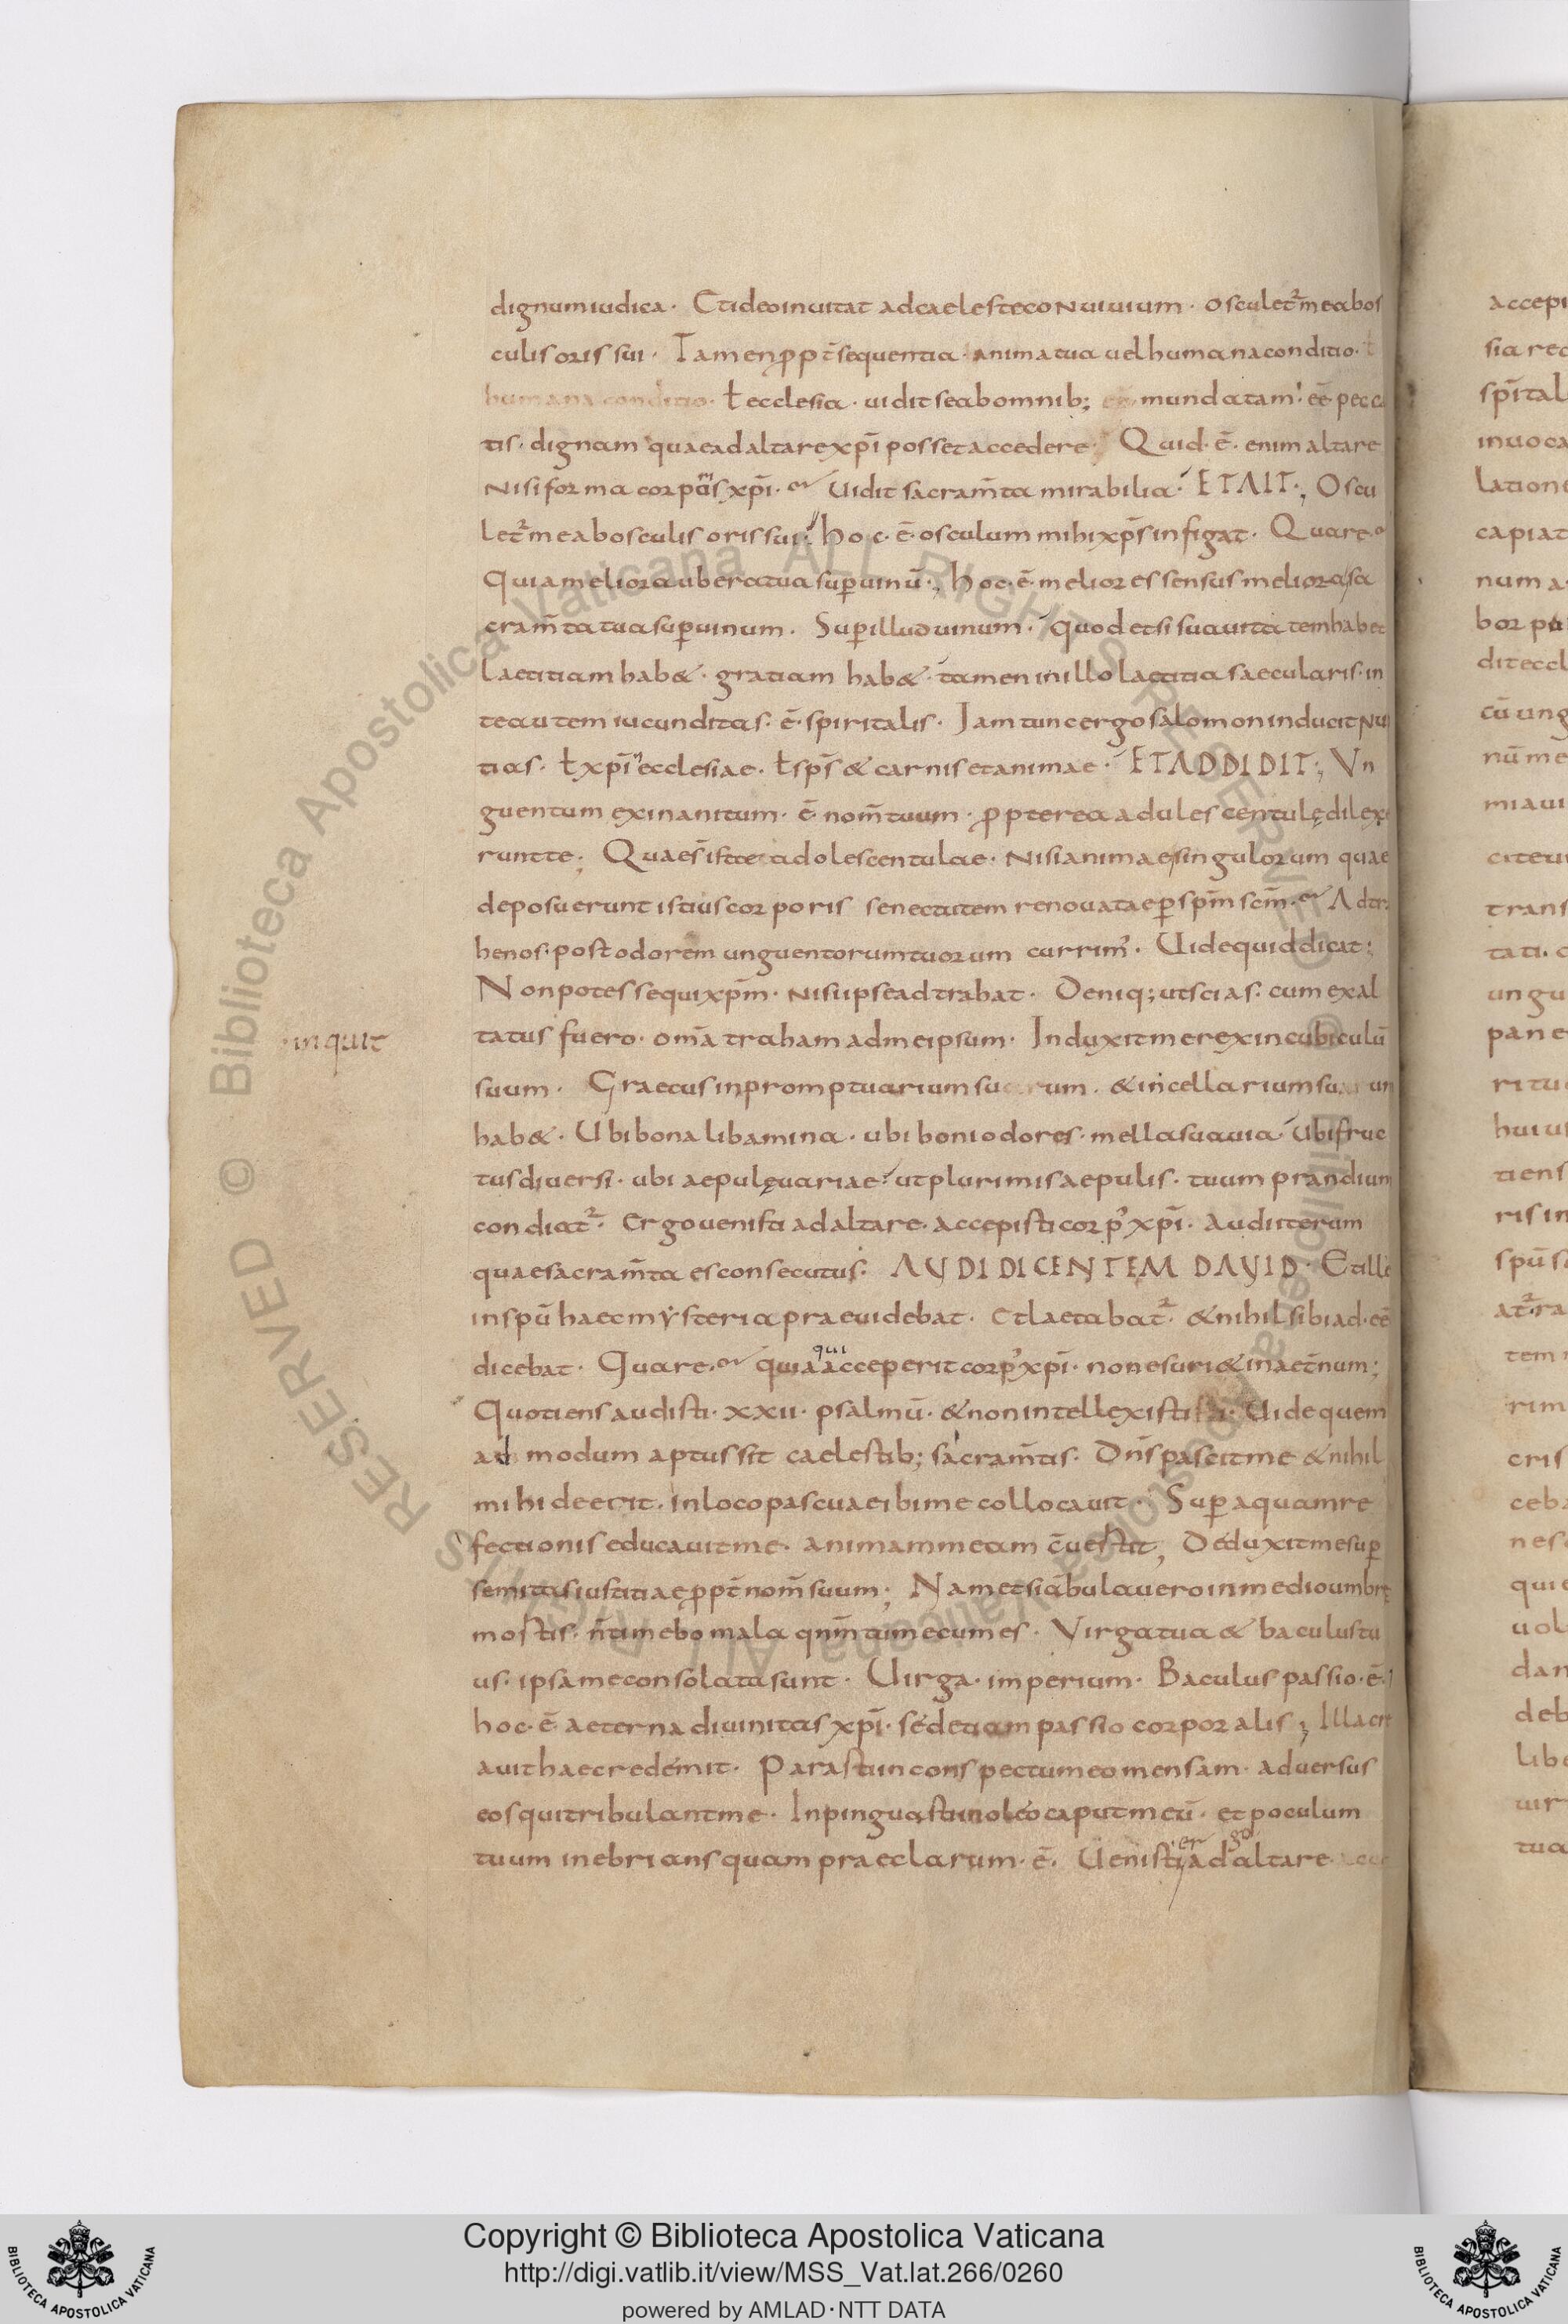 dignum iudica · Et ideo inuitat ad caeleste conuiuium · osculet᷑ me ab os
culis oris sui · Tamen ꝓpt̄ sequentia · anima tua uel humana conditio · ł
humana conditio · ł ecclesia · uidit se ab omnib; · mundatam · eē pecca
tis · dignam quae ad altare xp̄i posset accedere · Quid · ē · enim altare
nisi forma corporis xp̄i · Uidit sacram̄ta mirabilia · ET AIT ·, Oscu
let᷑ me ab osculis oris sui · hoc · ē · osculum mihi xp̄s infigat · Quare ·
Quia meliora ubera tua sup̄ uinū ·, hoc · ē · meliores sensus meliora sa
cram̄ta tua sup̄ uinum · Sup̄ illud uinum · quod etsi suauitatem habet
laetitiam hab& · gratiam hab& · tamen in illo laetitia saecularis · in
te autem iucunditas · ē · spiritalis · Iam tunc ergo salomon inducit nup
tias · ł xp̄i ecclesiae · ł sp̄s & carnis et animae · ET ADDIDIT ·, Vn
guentum exinanitum · ē nom̄ tuum · ꝓpterea adulescentulę dilexe
runt te ; Quae s̄ istae adolescentulae · nisi animae singulorum quae
deposuerunt istius corporis senectutem renouatae ꝑ sp̄m sc̄m · Adtra
he nos · post odorem unguentorum tuorum currim᾽ · Uide quid dicat ;
Non potes sequi xp̄m · nisi ipse adtrahat · Deniq; ut scias · cum exal
inquit
tatus fuero · om̄a traham ad me ipsum · Induxit me rex in cubiculū
suum · Graecus in promptuarium suum · & in cellarium suum
hab& · Ubi bona libamina · ubi boni odores · mella suauia · Ubi fruc
tus diuersi · ubi aepulę uariae · ut plurimis aepulis · tuum prandium
condiat᷑ · Ergo uenisti ad altare · accepisti corp᾽ xp̄i · Audi iterum
quae sacram̄ta es consecutus · AUDI DICENTEM DAUID · Et ille
in sp̄u haec mẏsteria praeuidebat · Et laetabat᷑ · & nihil sibi ad · eē
qui
dicebat · Quare · quia acceperit corp᾽ xp̄i · non esuri& in aet̄num ;
Quotiens audisti · xxii · psalmū · & non intellexisti · Uide quem
ad modum aptus sit caelestib; sacram̄tis · Dn̄s pascit me & nihil
mihi deerit · in loco pascuae ibi me collocauit · Sup̄ aquam re
fectionis educauit me · animam meam c̄uertit, Deduxit me sup̄
semitas iustitiae ꝓpt̄ nom̄ suum ; Nam et si ambulauero in medio umbre
mortis · n̄ timebo mala qnm̄ tu mecum es · Virga tua & baculus tu
us · ipsa me consolata sunt · Uirga · imperium · Baculus passio · ē ·
hoc · ē · aeterna diuinitas xp̄i · sed etiam passio corporalis ; Illa cre
auit haec redemit · Parasti in conspectu meo mensam · aduersus
eos qui tribulant me · Inpinguasti in oleo caput meū · et poculum
er go
tuum inebrians quam praeclarum · ē · Uenisti ad altare
accepi
inuoca
latione
capiat
num a
dit eccl
cū ung
nū me
mi aui
trans
ta ti · c
ungu
pane
ritu
huius
tiens
ris in
tem
rim
cris
ceba
nes
qui
uol
dan
deb
libe
uir
tua
© Biblioteca Apostolica Vaticana ALL RIGHTS RESERVED
Copyright © Biblioteca Apostolica Vaticana
http://digi.vatlib.it/view/MSS_Vat.lat.266/0260
powered by AMLAD·NTT DATA
BIBLIOTECA APOSTOLICA VATICANA
BIBLIOTECA APOSTOLICA VATICANA